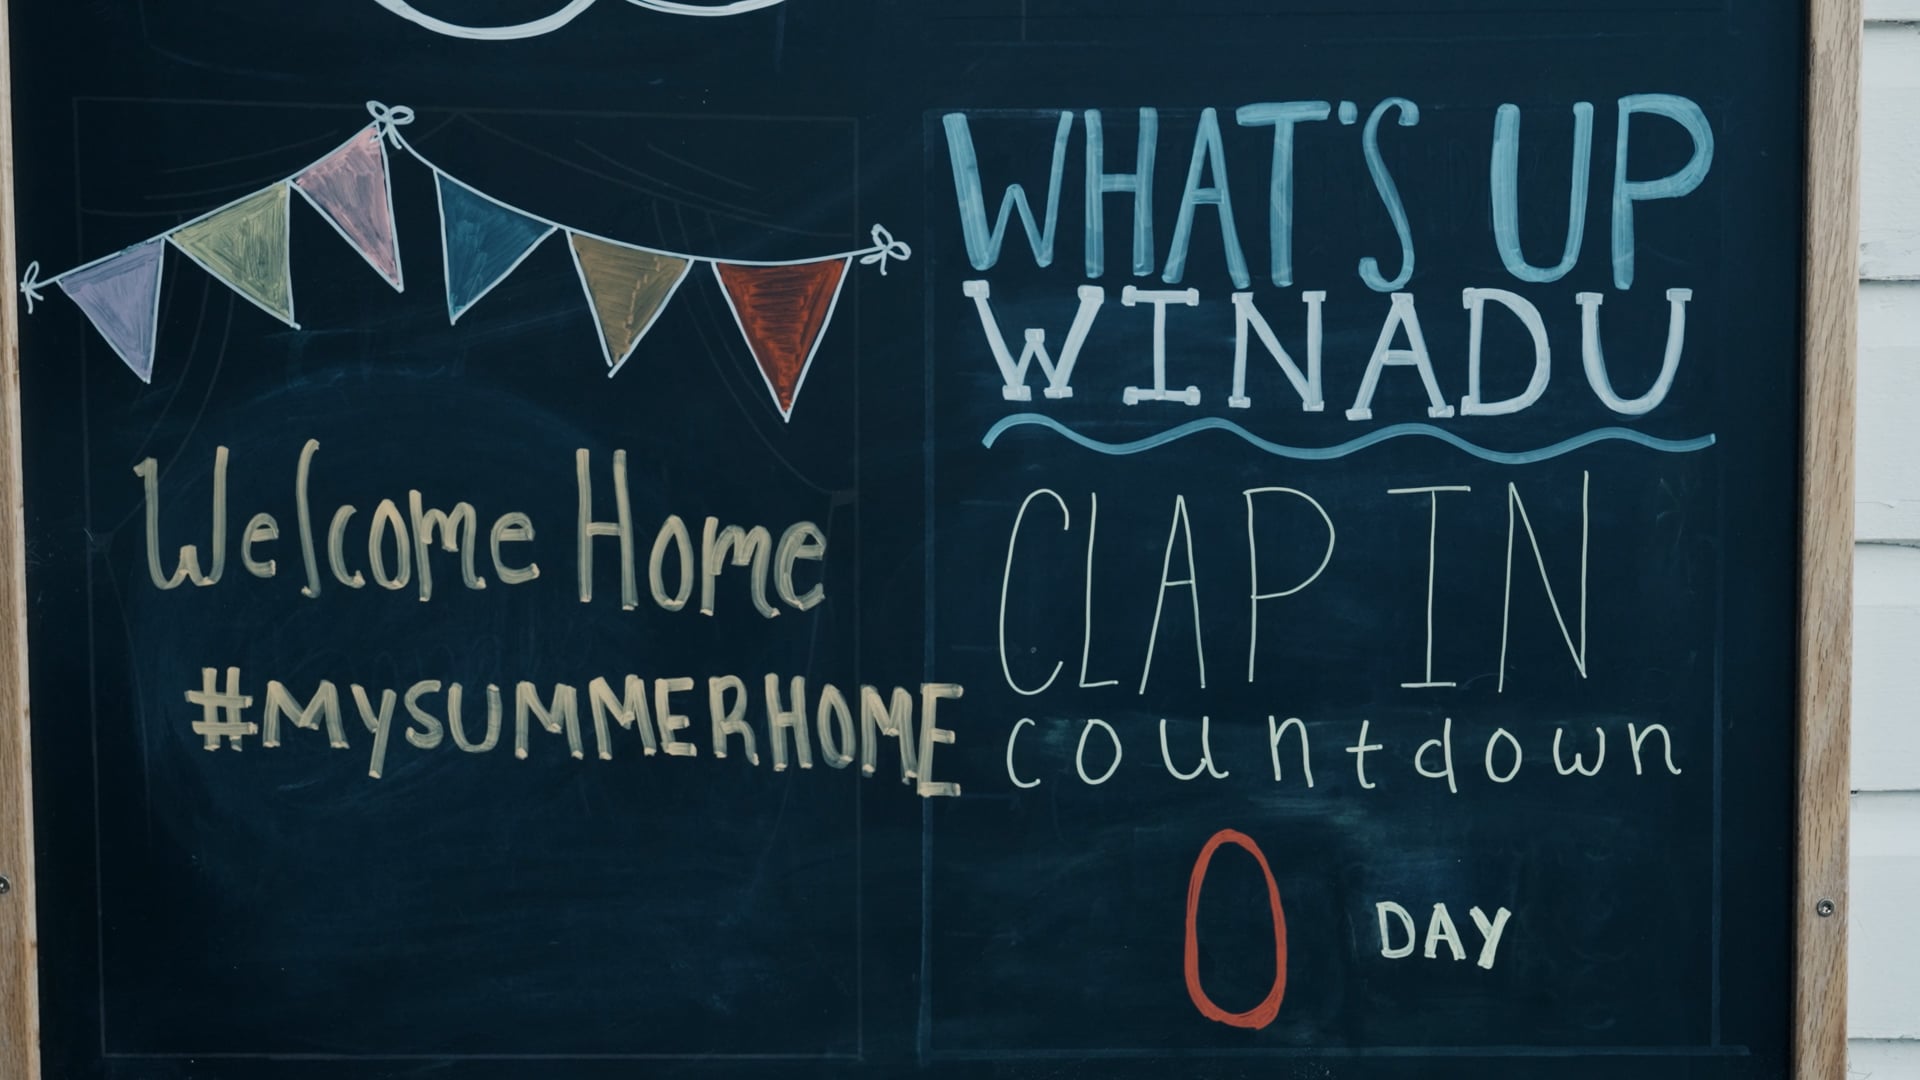 Welcome Home
#MYSUMMERHOME
WHAT'S UP
WINADU
CLAP IN
countdown
0 DAY